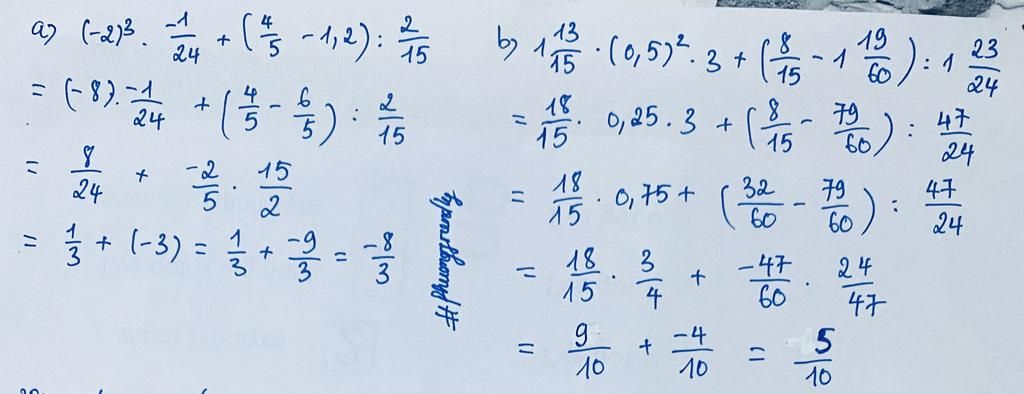 a) (-2)³ . -1/24 + (4/5 - 1,2) : 2/15
= (-8) . -1/24 + (4/5 - 6/5) : 2/15
= 8/24 + -2/5 . 15/2
= 1/3 + (-3) = 1/3 + -9/3 = -8/3
b) 1 13/15 . (0,5)² . 3 + (8/15 - 1 19/60) : 1 23/24
= 18/15 . 0,25 . 3 + (8/15 - 79/60) : 47/24
= 18/15 . 0,75 + (32/60 - 79/60) : 47/24
= 18/15 . 3/4 + -47/60 . 24/47
= 9/10 + -4/10 = 5/10